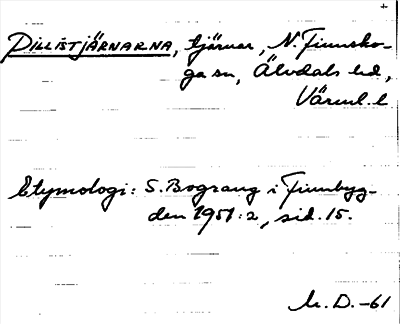 PILLISTJÄRNARNA, tjärnar, N. Finnsko-
ga sn, Älvdals hd,
Värml. l
Etymologi: S. Bograng i Finnbyg-
den 1951:2, sid. 15.
D. -61